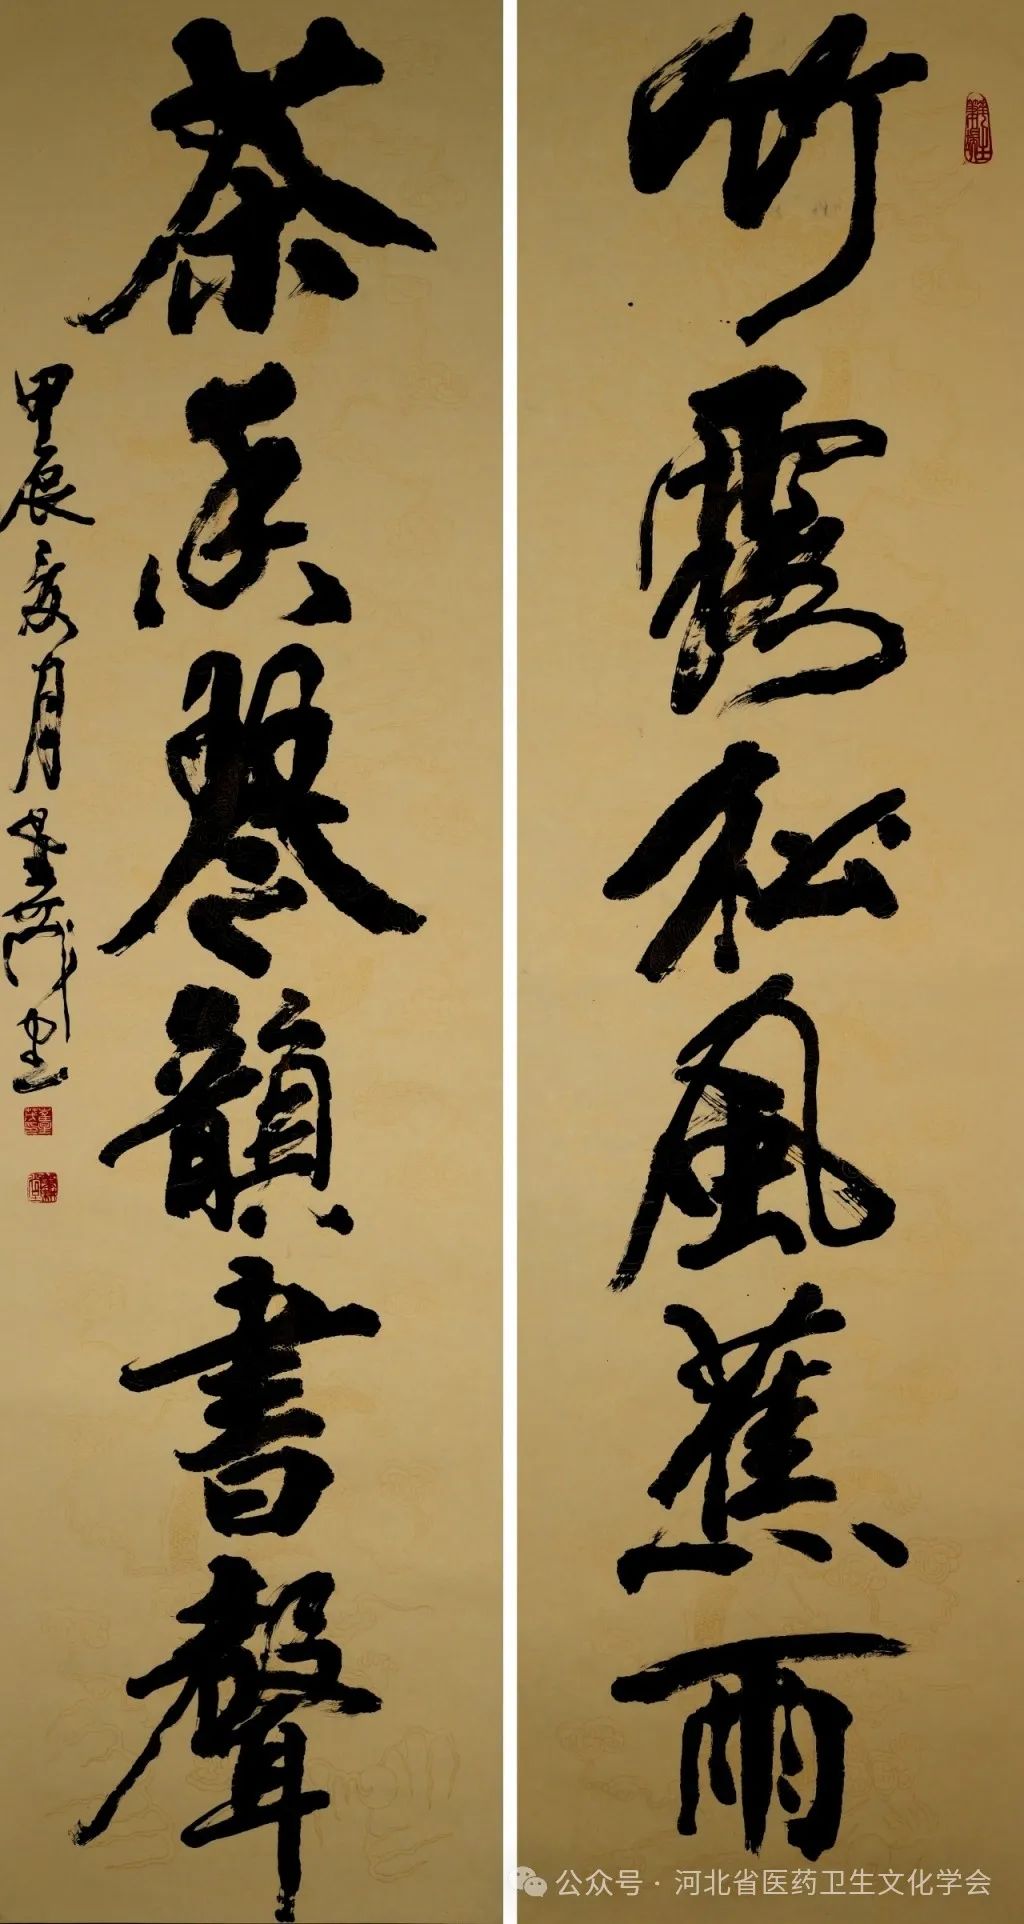 竹露松风蕉雨
茶香琴韻書聲
甲辰夏月
书
公众号·河北省医药卫生文化学会